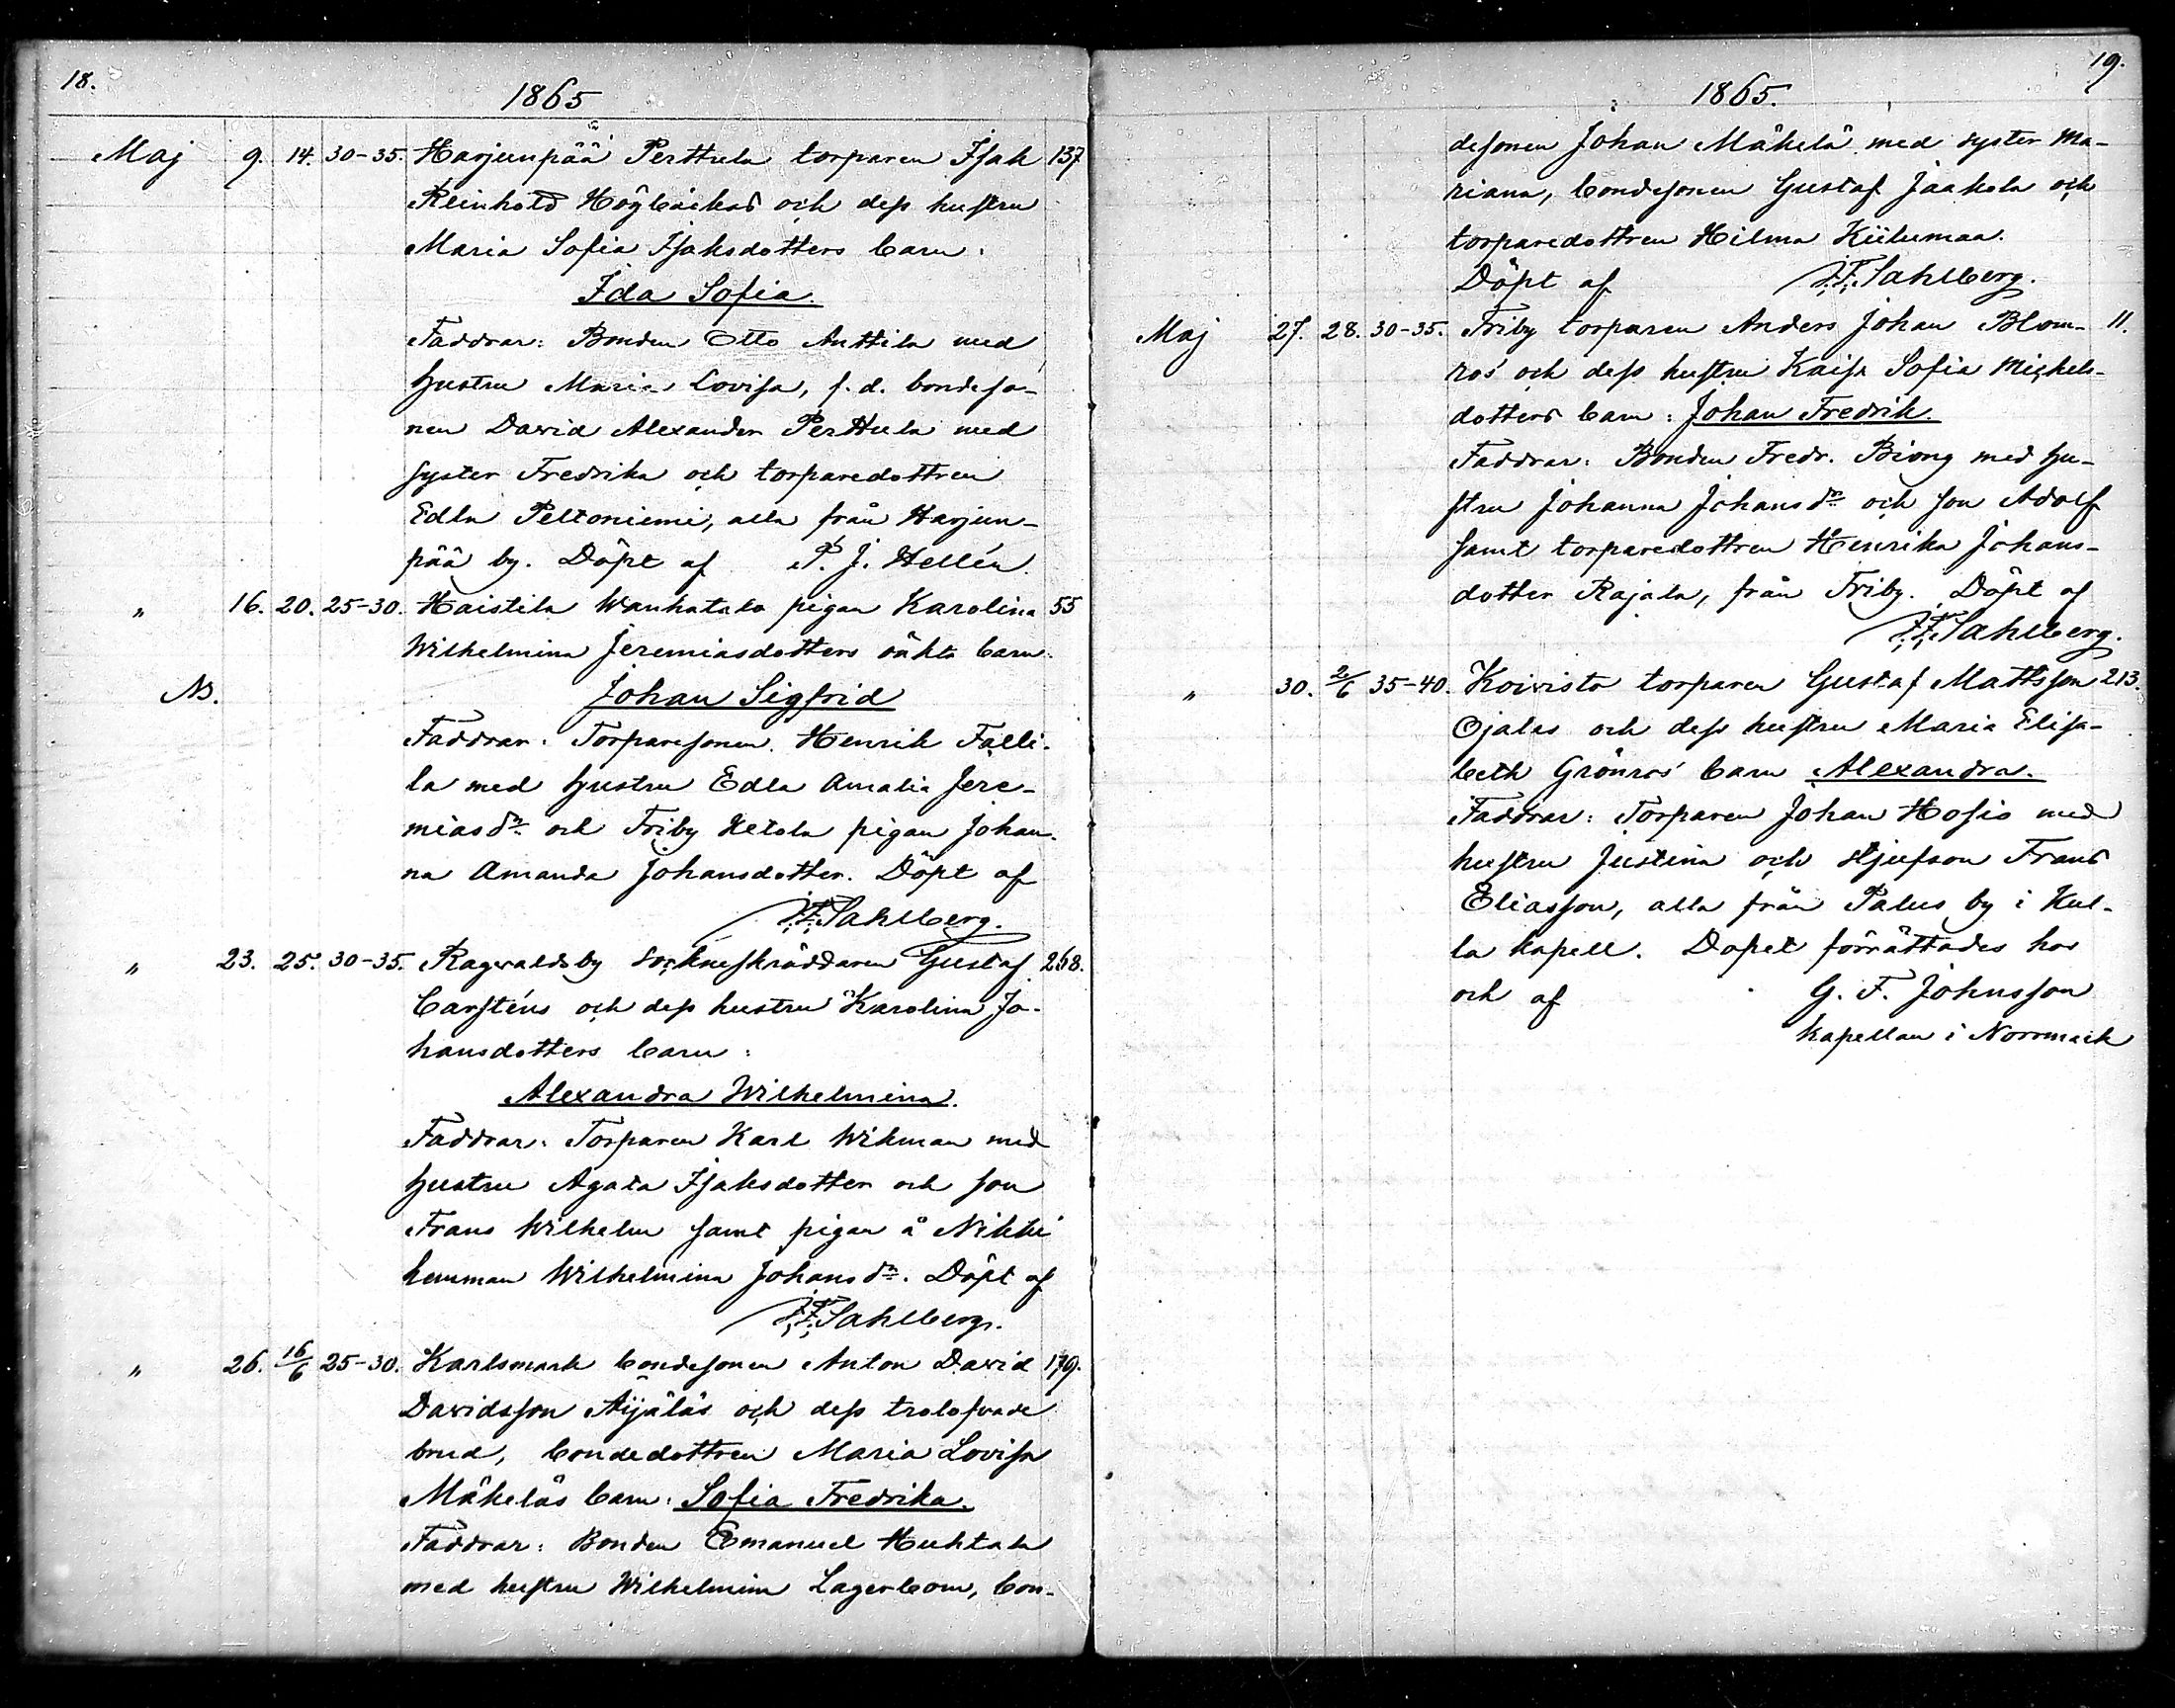 18.
1865
Maj 9. 14. 30-35. Harjunpää Perttula torparen Isak 137
Reinhold Högbackas och dess hustru
Maria Sofia Isaksdotters barn:
Ida Sofia.
Faddrar: Bonden Otto Anttila med
hustru Maria Lovisa, f.d. bondeso-
nen David Alexander Perttula med
syster Fredrika och torparedottren
Edla Peltoniemi, alla från Harjun-
pää by. Döpt af P. J. Hellén.
" 16. 20. 25-30. Haistila Wanhatalo pigan Karolina 55
Wilhelmina Jeremiasdotters oäkta barn:
NB. Johan Sigfrid
Faddrar: Torparesonen Henrik Falli-
la med hustru Edla Amalia Jere-
miasdr och Friby Ketola pigan Johan-
na Amanda Johansdotter. Döpt af
F. F. Sahlberg.
" 23. 25. 30-35. Ragwaldsby sockneskräddaren Gustaf 268.
Carsténs och dess hustru Karolina Jo-
hansdotters barn:
Alexandra Wilhelmina.
Faddrar: Torparen Karl Wikman med
hustru Agata Isaksdotter och son
Frans Wilhelm samt pigan å Nikki
hemman Wilhelmina Johansdr. Döpt af
F. F. Sahlberg.
" 26. 16/6 25-30. Karlsmark bondesonen Anton David 179.
Davidsson Äijäläs och dess trolofvade
brud, bondedottren Maria Lovisa
Mäkeläs barn: Sofia Fredrika.
Faddrar: Bonden Emanuel Huhtala
med hustru Wilhelmina Lagerbom, bon-
19.
1865.
desonen Johan Mäkelä med syster Ma-
riana, bondesonen Gustaf Jaakola och
torparedottren Hilma Kiilumaa.
Döpt af F. F. Sahlberg.
Maj 27. 28. 30-35. Friby torparen Anders Johan Blom- 11.
ros' och dess hustru Kaisa Sofia Michels-
dotters barn: Johan Fredrik.
Faddrar: Bonden Fredr. Biong med hu-
stru Johanna Johansdr och son Adolf
samt torparedottren Henrika Johans-
dotter Rajala, från Friby. Döpt af
F. F. Sahlberg.
" 30. 2/6 35-40. Koivisto torparen Gustaf Mattsson 213.
Ojalas och dess hustru Maria Elisa-
beth Grönros' barn Alexandra.
Faddrar: Torparen Johan Hosio med
hustru Justina och styfson Frans
Eliasson, alla från Palus by i Kul-
la kapell. Dopet förrättades hos
och af G. F. Johnsson
kapellan i Norrmark